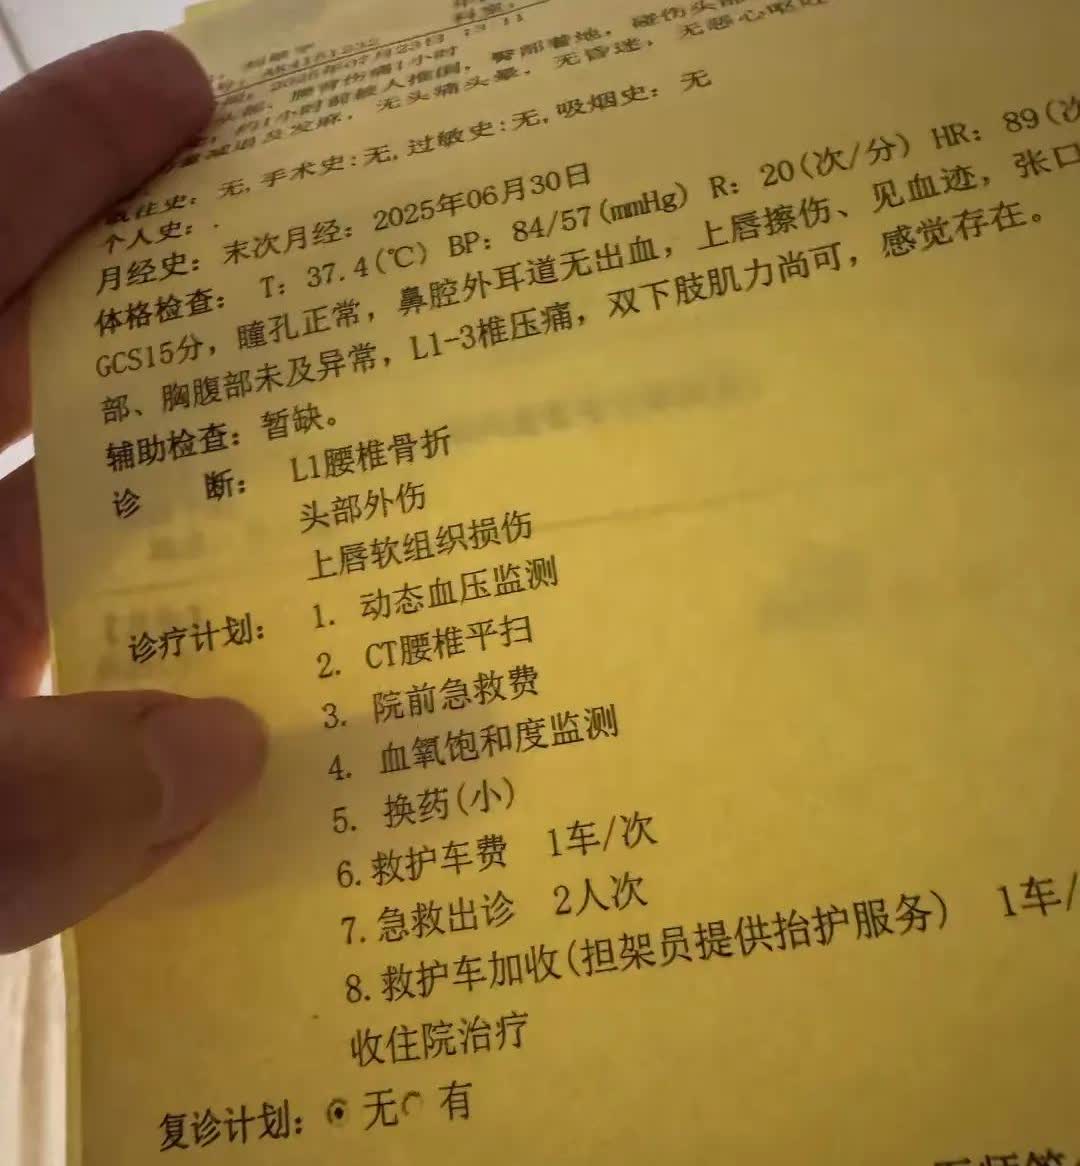 科室:
2025年07月23日 13:11
腰背伤痛1小时
约1小时前被人推倒, 臀部着地, 碰伤头部
减退及发麻, 无头痛头晕, 无昏迷, 无恶心呕吐
既往史: 无, 手术史:无, 过敏史:无, 吸烟史: 无
个人史: .
月经史: 末次月经: 2025年06月30日
体格检查: T: 37.4(℃) BP: 84/57(mmHg) R: 20(次/分) HR: 89(次
GCS15分, 瞳孔正常, 鼻腔外耳道无出血, 上唇擦伤、见血迹, 张口
部、胸腹部未及异常, L1-3椎压痛, 双下肢肌力尚可, 感觉存在。
辅助检查: 暂缺。
诊 断: L1腰椎骨折
头部外伤
上唇软组织损伤
诊疗计划: 1. 动态血压监测
2. CT腰椎平扫
3. 院前急救费
4. 血氧饱和度监测
5. 换药(小)
6.救护车费 1车/次
7.急救出诊 2人次
8.救护车加收(担架员提供抬护服务) 1车/
收住院治疗
复诊计划: 无 有